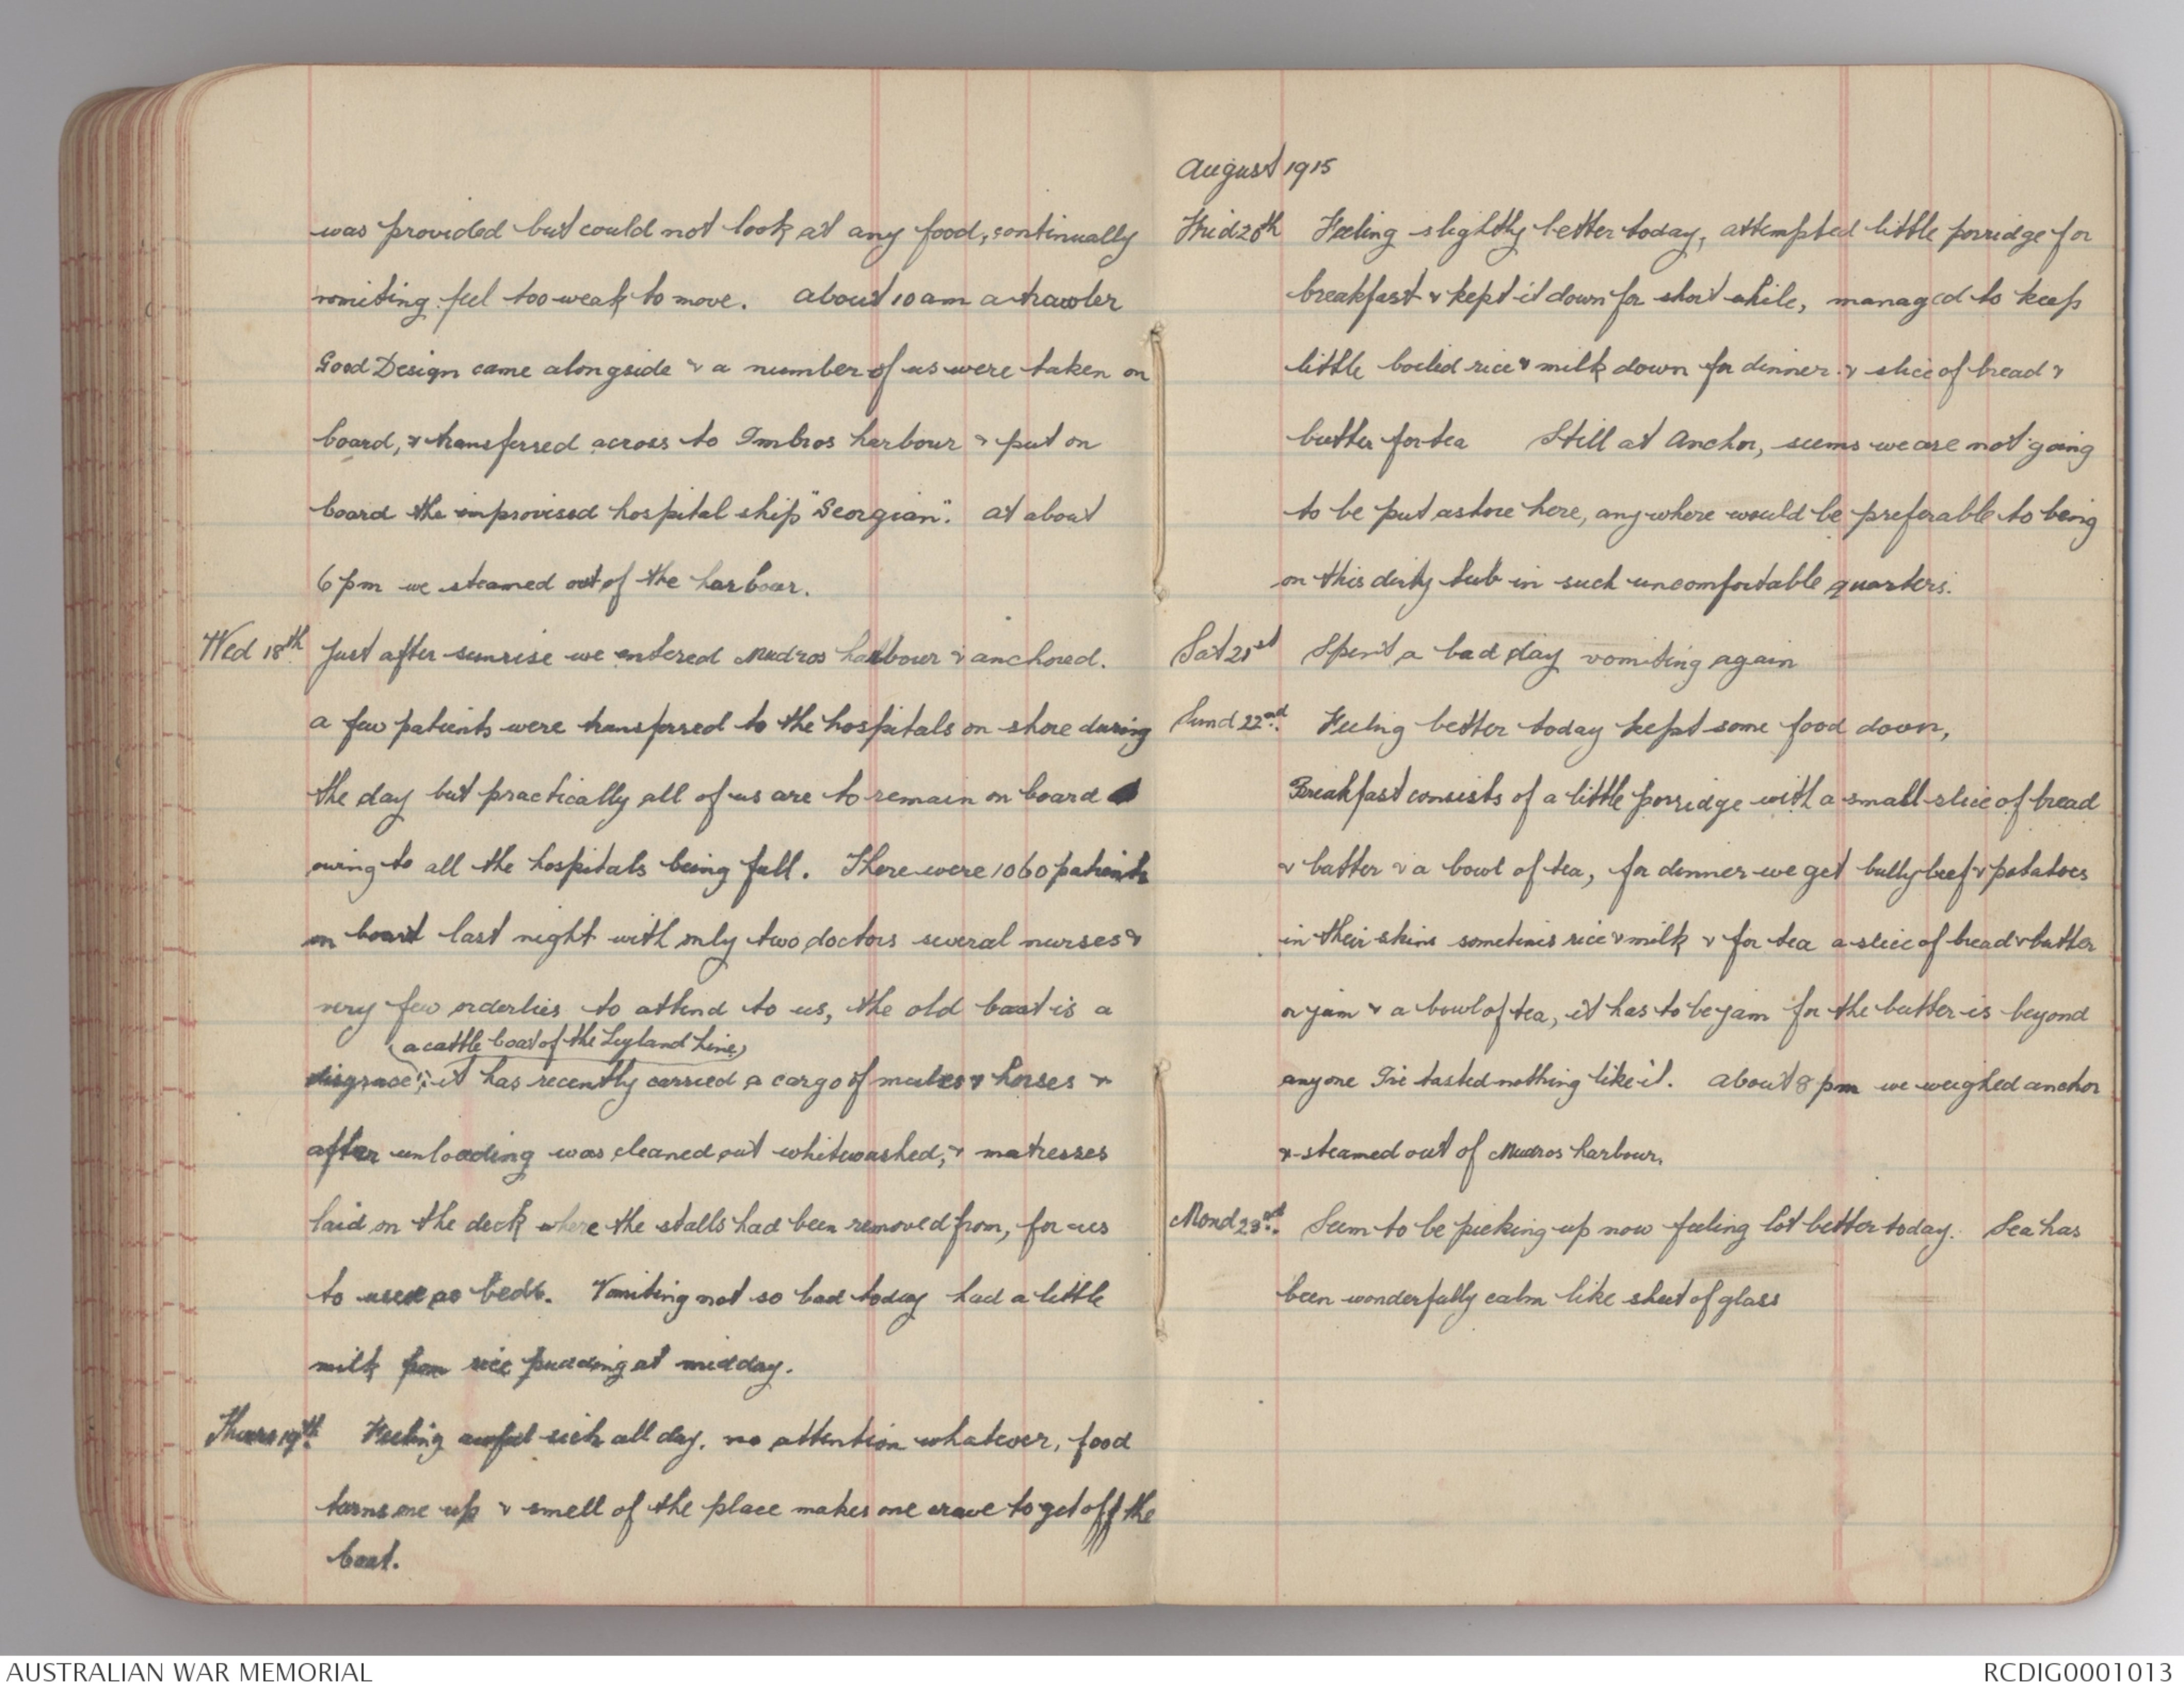 was provided but could not look at any food, continually
vomiting feel too weak to move. About 10 am a trawler
Good Design came alongside & a number of us were taken on
board, & transferred across to Imbros harbour & put on
board the improvised hospital ship "Georgian". At about
6 pm we steamed out of the harbour.
Wed 18th Just after sunrise we entered Mudros harbour & anchored.
A few patients were transferred to the hospitals on shore during
the day but practically all of us are to remain on board
owing to all the hospitals being full. There were 1060 patients
on board last night with only two doctors several nurses &
very few orderlies to attend to us, the old boat is a
(a cattle boat of the Leyland Line)
disgrace; it has recently carried a cargo of mules & horses &
after unloading was cleaned out whitewashed, & matresses
laid on the deck where the stalls had been removed from, for us
to use as beds. Vomiting not so bad today had a little
milk from rice pudding at midday.
Thurs 19th. Feeling awful sick all day, no attention whatever, food
turns me up & smell of the place makes one crave to get off the
boat.
August 1915
Frid 20th Feeling slightly better today, attempted little porridge for
breakfast & kept it down for short while, managed to keep
little boiled rice & milk down for dinner & slice of bread &
butter for tea Still at Anchor, seems we are not going
to be put ashore here, anywhere would be preferable to being
on this dirty tub in such uncomfortable quarters.
Sat 21st Spent a bad day vomiting again
Sund 22nd. Feeling better today kept some food down,
Breakfast consists of a little porridge with a small slice of bread
& butter & a bowl of tea, for dinner we get bully beef & potatoes
in their skins sometimes rice & milk & for tea a slice of bread & butter
or jam & a bowl of tea, it has to be jam for the butter is beyond
anyone I've tasted nothing like it. About 8 pm we weighed anchor
& steamed out of Mudros harbour.
Mond 23rd. Seem to be picking up now feeling lot better today. Sea has
been wonderfully calm like sheet of glass
AUSTRALIAN WAR MEMORIAL
RCDIG0001013